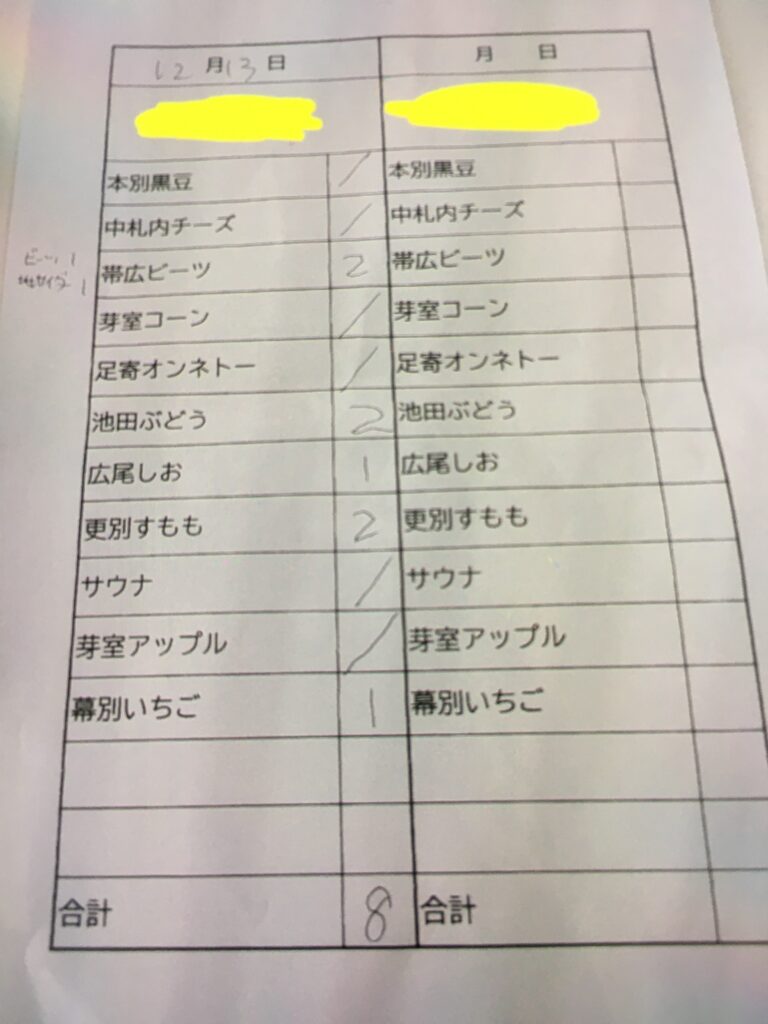 12月13日 月 日
本別黒豆 / 本別黒豆
中札内チーズ / 中札内チーズ
ビーツ 1
帯広ビーツ 2 帯広ビーツ
1
芽室コーン / 芽室コーン
足寄オンネトー / 足寄オンネトー
池田ぶどう 2 池田ぶどう
広尾しお 1 広尾しお
更別すもも 2 更別すもも
サウナ / サウナ
芽室アップル / 芽室アップル
幕別いちご 1 幕別いちご
合計 8 合計